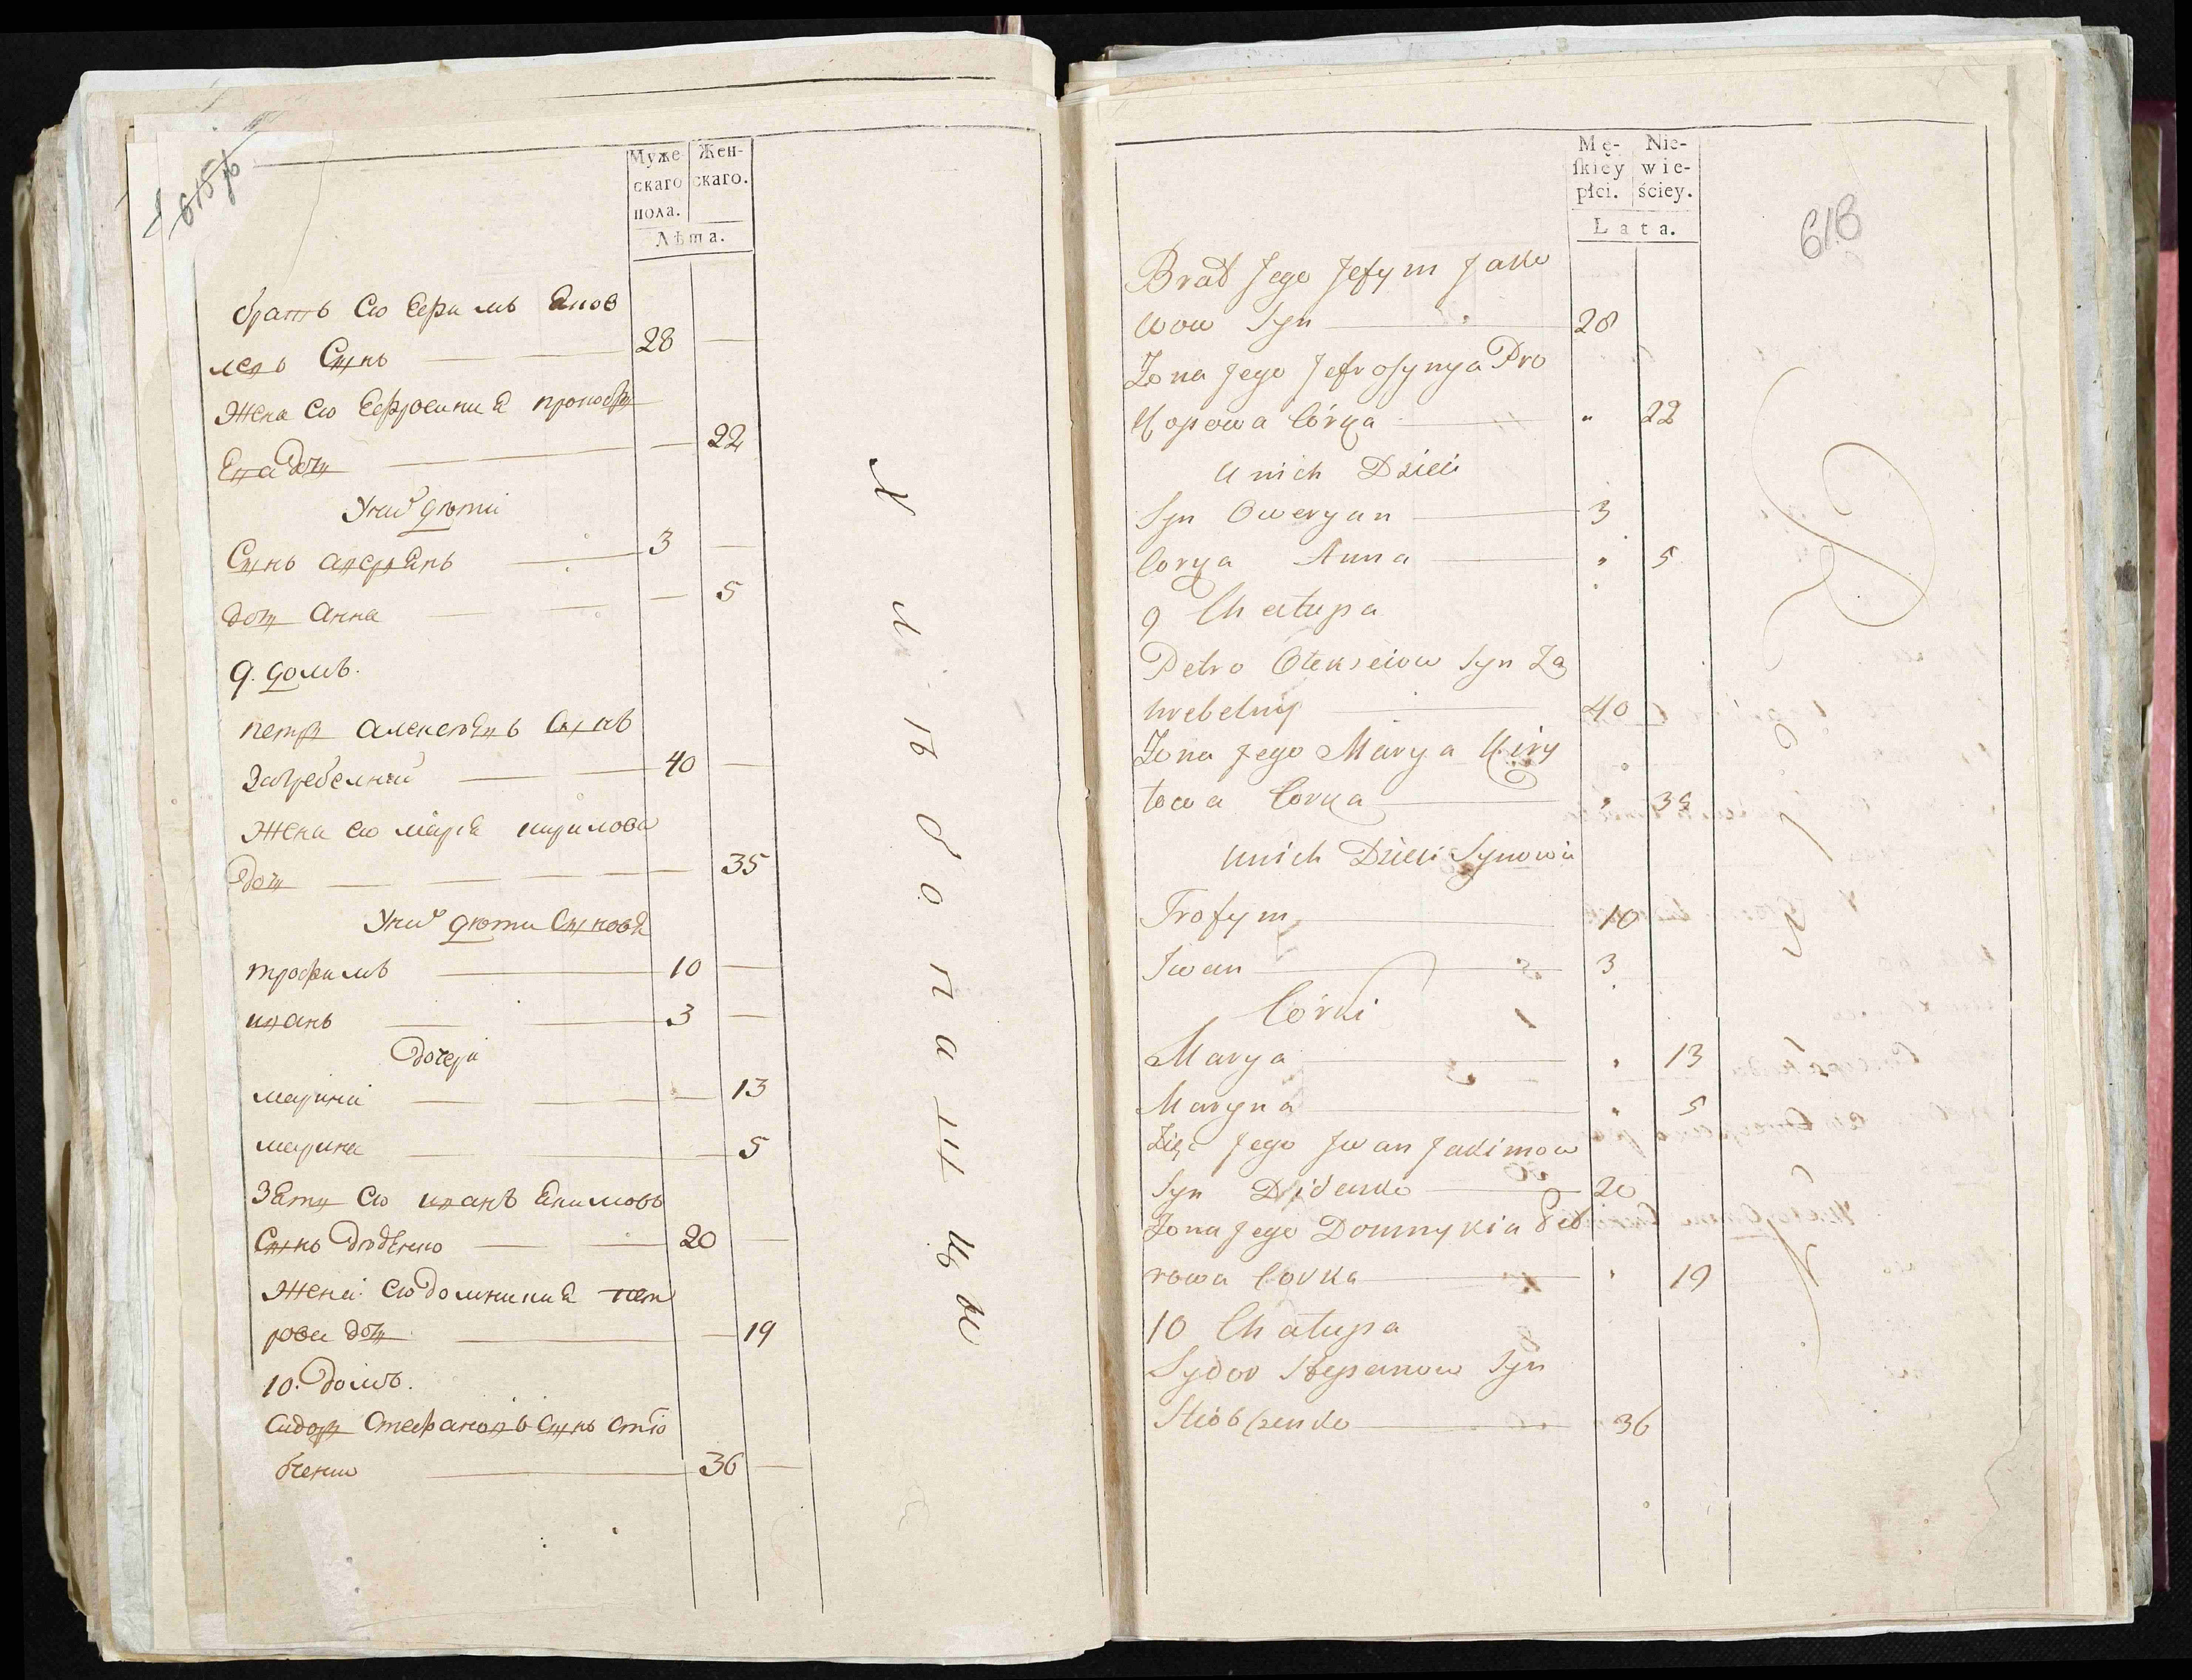 615 об
Муже- Жен-
скаго скаго.
пола.
Лѣта.
братъ его Ефимъ Яков
левъ Сынъ — 28 —
Жена его Ефросиния прокофи
Ева дочь — 22
У них дѣти
Сынъ аверянъ — 3 —
дочь Анна — 5
9. домъ.
петръ алексѣевъ Сынъ
Загребелний — 40 —
Жена его маря кирилова
дочь — 35
У них дѣти Сыновя
трофимъ — 10 —
иванъ — 3 —
дочери
— 13
марина — 5
Зять его иванъ Якимовъ
Сынъ — 20 —
Жена его домникия пет
рова дочь — 19
10. домъ.
сидоръ Стефановъ Сынъ стю
бченко — 36 —
Хлѣбопашцы
Mę- Nie-
skiey wie-
płci. ściey.
Lata.
618
Brat Jego Jefym Jako
wow Syn — 28
Żona Jego Jefrosynya Pro
kopowa Córka — " 22
U nich Dzieci
Syn Oweryan — 3
Corka Anna — " 5
9 Chałupa
Petro Ołekseiow Syn Za
hrebelny — 40
Żona Jego Marya Kiry
łowa Corka — " 35
U nich Dzieci Synowie
Trofym — 10
Iwan — 3
Córki
Marya — " 13
Maryna — " 5
Zięć Jego Iwan Jakimow
Syn Didenko — 20
Żona Jego Domnykia Pet
rowa Corka — " 19
10 Chałupa
Sydor Stepanow Syn
Stiobczenko — 36